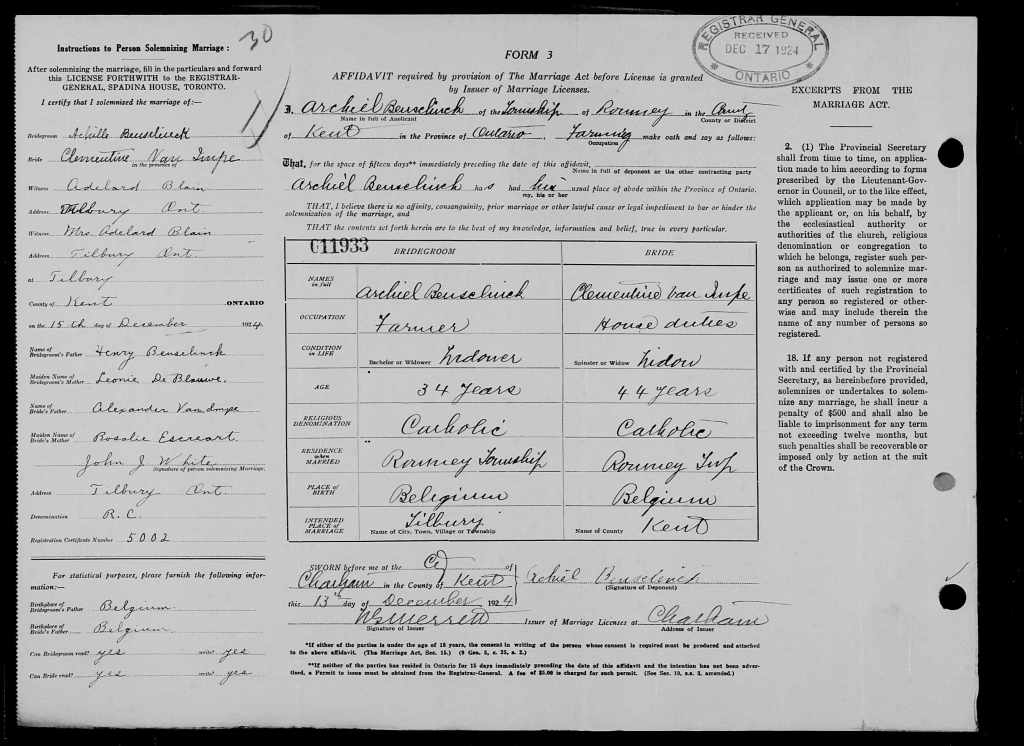 30
Instructions to Person Solemnizing Marriage :
After solemnizing the marriage, fill in the particulars and forward
this LICENSE FORTHWITH to the REGISTRAR-
GENERAL, SPADINA HOUSE, TORONTO.
I certify that I solemnized the marriage of:—
Bridegroom Achille Benselinck
Bride Clementine Van Impe
in the province of
Witness Adelard Blain
Address Tilbury Ont
Witness Mrs. Adelard Blain
Address Tilbury Ont.
at Tilbury
County of Kent ONTARIO
on the 15th day of December 1924
Name of
Bridegroom's Father Henry Benselinck
Maiden Name of
Bridegroom's Mother Leonie De Blauwe.
Name of
Bride's Father Alexander Van Impe
Maiden Name of
Bride's Mother Rosalie
John J White
Signature of person solemnizing Marriage.
Address Tilbury Ont.
Denomination R.C.
Registration Certificate Number 5002
For statistical purposes, please furnish the following infor-
mation:—
Birthplace of
Bridegroom's Father Belgium
Birthplace of
Bride's Father Belgium
Can Bridegroom read? yes write? yes
Can Bride read? yes write? yes
FORM 3
AFFIDAVIT required by provision of The Marriage Act before License is granted
by Issuer of Marriage Licenses.
I, Archiel Benselinck of the Township of Romney in the County
Name in full of Applicant County or District
of Kent in the Province of Ontario, Farming make oath and say as follows:
Occupation
That, for the space of fifteen days** immediately preceding the date of this affidavit,
Name in full of deponent or the other contracting party
Archiel Benselinck has had his usual place of abode within the Province of Ontario.
my, his or her
THAT, I believe there is no affinity, consanguinity, prior marriage or other lawful cause or legal impediment to bar or hinder the
solemnization of the marriage, and
THAT the contents set forth herein are to the best of my knowledge, information and belief, true in every particular.
C11933
BRIDEGROOM BRIDE
NAMES
in full
Archiel Benselinck Clementine Van Impe
OCCUPATION
Farmer House duties
CONDITION
in LIFE
Bachelor or Widower Widower Spinster or Widow Widow
AGE
34 Years 44 Years
RELIGIOUS
DENOMINATION
Catholic Catholic
RESIDENCE
when
MARRIED
Romney Township Romney Twp
PLACE OF
BIRTH
Belgium Belgium
INTENDED
PLACE OF
MARRIAGE
Tilbury Kent
Name of City, Town, Village or Township Name of County
SWORN before me at the City of
Chatham in the County of Kent
this 13th day of December 1924
Archiel Benselinck
(Signature of Deponent)
Issuer of Marriage Licenses at Chatham
Signature of Issuer Address of Issuer
*If either of the parties is under the age of 18 years, the consent in writing of the person whose consent is required must be produced and attached
to the above affidavit. (The Marriage Act, Sec. 15.) (9 Geo. 5, c. 35, s. 2.)
**If neither of the parties has resided in Ontario for 15 days immediately preceding the date of this affidavit and the intention has not been adver-
tised, a Permit to issue must be obtained from the Registrar-General. A fee of $5.00 is charged for such permit. (See Sec. 10, s.s. 3, amended.)
REGISTRAR GENERAL
RECEIVED
DEC 17 1924
ONTARIO
EXCERPTS FROM THE
MARRIAGE ACT.
2. (1) The Provincial Secretary
shall from time to time, on applica-
tion made to him according to forms
prescribed by the Lieutenant-Gov-
ernor in Council, or to the like effect,
which application may be made by
the applicant or, on his behalf, by
the ecclesiastical authority or
authorities of the church, religious
denomination or congregation to
which he belongs, register such per-
son as authorized to solemnize mar-
riage and may issue one or more
certificates of such registration to
any person so registered or other-
wise and may include therein the
name of any number of persons so
registered.
18. If any person not registered
with and certified by the Provincial
Secretary, as hereinbefore provided,
solemnizes or undertakes to solem-
nize any marriage, he shall incur a
penalty of $500 and shall also be
liable to imprisonment for any term
not exceeding twelve months, but
such penalties shall be recoverable or
imposed only by action at the suit
of the Crown.